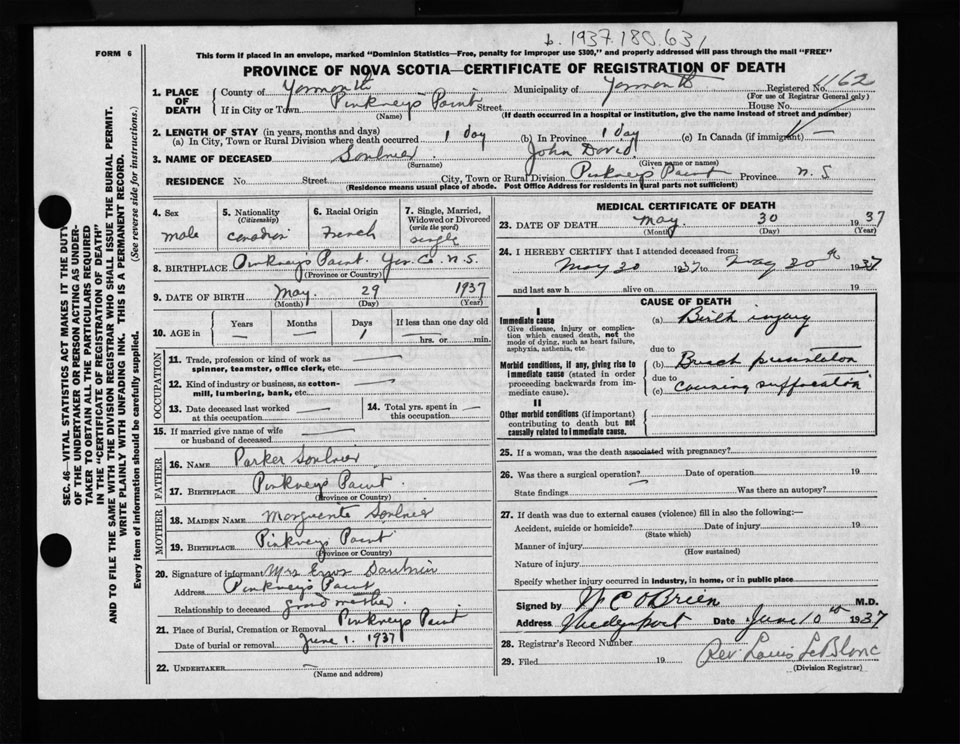 b. 1937.180.631
FORM 6
This form if placed in an envelope, marked "Dominion Statistics—Free, penalty for improper use $300," and properly addressed will pass through the mail "FREE"
PROVINCE OF NOVA SCOTIA—CERTIFICATE OF REGISTRATION OF DEATH
SEC. 46—VITAL STATISTICS ACT MAKES IT THE DUTY
OF THE UNDERTAKER OR PERSON ACTING AS UNDER-
TAKER TO OBTAIN ALL THE PARTICULARS REQUIRED
IN THE "CERTIFICATE OF REGISTRATION OF DEATH"
AND TO FILE THE SAME WITH THE DIVISION REGISTRAR WHO SHALL ISSUE THE BURIAL PERMIT.
WRITE PLAINLY WITH UNFADING INK. THIS IS A PERMANENT RECORD.
Every item of information should be carefully supplied. (See reverse side for instructions.)
1. PLACE OF DEATH County of Yarmouth Municipality of Yarmouth Registered No. 1162
(For use of Registrar General only)
If in City or Town Pinkney's Point Street House No.
(Name) (If death occurred in a hospital or institution, give the name instead of street and number)
2. LENGTH OF STAY (in years, months and days)
(a) In City, Town or Rural Division where death occurred 1 day (b) In Province 1 day (c) In Canada (if immigrant) —
3. NAME OF DECEASED Soulnier John David
(Surname) (Given name or names)
RESIDENCE No. Street City, Town or Rural Division Pinkney's Point Province N.S
(Residence means usual place of abode. Post Office Address for residents in rural parts not sufficient)
4. Sex male
5. Nationality (Citizenship) Canadian
6. Racial Origin French
7. Single, Married, Widowed or Divorced (write the word) single
8. BIRTHPLACE Pinkney's Point. Yar. Co. N.S.
(Province or Country)
9. DATE OF BIRTH May 29 1937
(Month) (Day) (Year)
10. AGE in Years — Months — Days 1 If less than one day old hrs. or min.
OCCUPATION
11. Trade, profession or kind of work as spinner, teamster, office clerk, etc. —
12. Kind of industry or business, as cotton-mill, lumbering, bank, etc. —
13. Date deceased last worked at this occupation —
14. Total yrs. spent in this occupation —
15. If married give name of wife or husband of deceased —
FATHER
16. NAME Parker Soulnier
17. BIRTHPLACE Pinkney's Point
(Province or Country)
MOTHER
18. MAIDEN NAME Marguerite Soulnier
19. BIRTHPLACE Pinkney's Point
(Province or Country)
20. Signature of informant Mrs
Address Pinkney's Point
Relationship to deceased grandmother
21. Place of Burial, Cremation or Removal Pinkney's Point
Date of burial or removal June 1. 1937
22. UNDERTAKER —
(Name and address)
MEDICAL CERTIFICATE OF DEATH
23. DATE OF DEATH May 30 1937
(Month) (Day) (Year)
24. I HEREBY CERTIFY that I attended deceased from:
May 30 1937 to May 30th 1937
and last saw h alive on 19
CAUSE OF DEATH
I
Immediate cause (a) Birth injury
Give disease, injury or complica-
tion which caused death, not the
mode of dying, such as heart failure,
asphyxia, asthenia, etc.
due to
Morbid conditions, if any, giving rise to (b) Breech presentation
immediate cause (stated in order due to
proceeding backwards from im- (c) causing suffocation
mediate cause).
II
Other morbid conditions (if important)
contributing to death but not
causally related to immediate cause.
25. If a woman, was the death associated with pregnancy?
26. Was there a surgical operation? Date of operation 19
State findings Was there an autopsy?
27. If death was due to external causes (violence) fill in also the following:—
Accident, suicide or homicide? Date of injury 19
(State which)
Manner of injury
(How sustained)
Nature of injury
Specify whether injury occurred in industry, in home, or in public place
Signed by W C O'Brien M.D.
Address Wedgeport Date June 10th 1937
28. Registrar's Record Number
29. Filed 19 Rev. Louis LeBlanc
(Division Registrar)